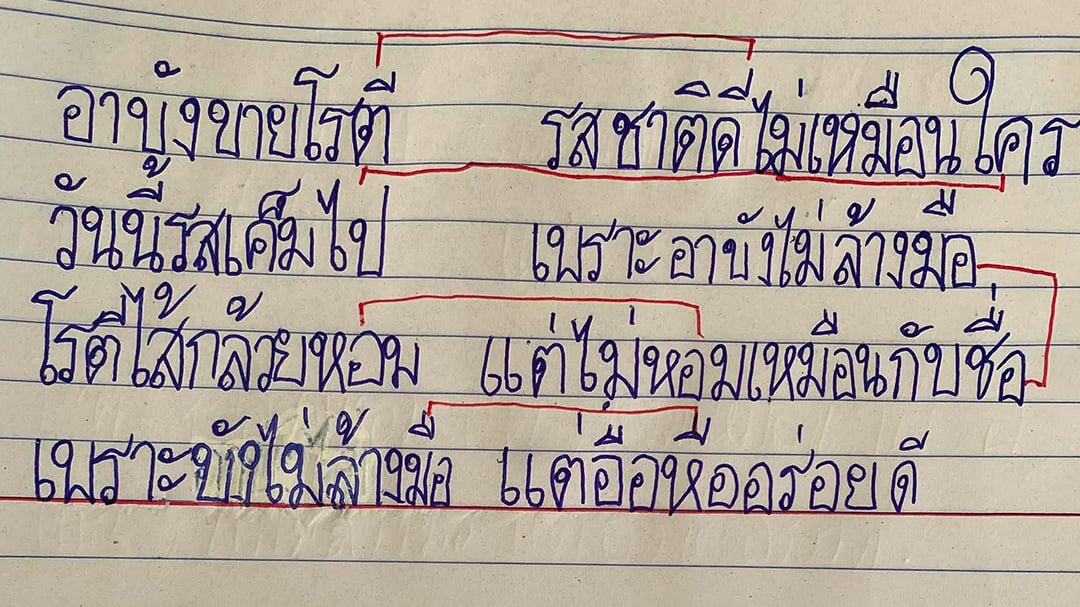 อาบังขายโรตี รสชาติดีไม่เหมือนใคร
วันนี้รสเค็มไป เพราะอาบังไม่ล้างมือ
โรตีไส้กล้วยหอม แต่ไม่หอมเหมือนกับชื่อ
เพราะบังไม่ล้างมือ แต่อือหืออร่อยดี